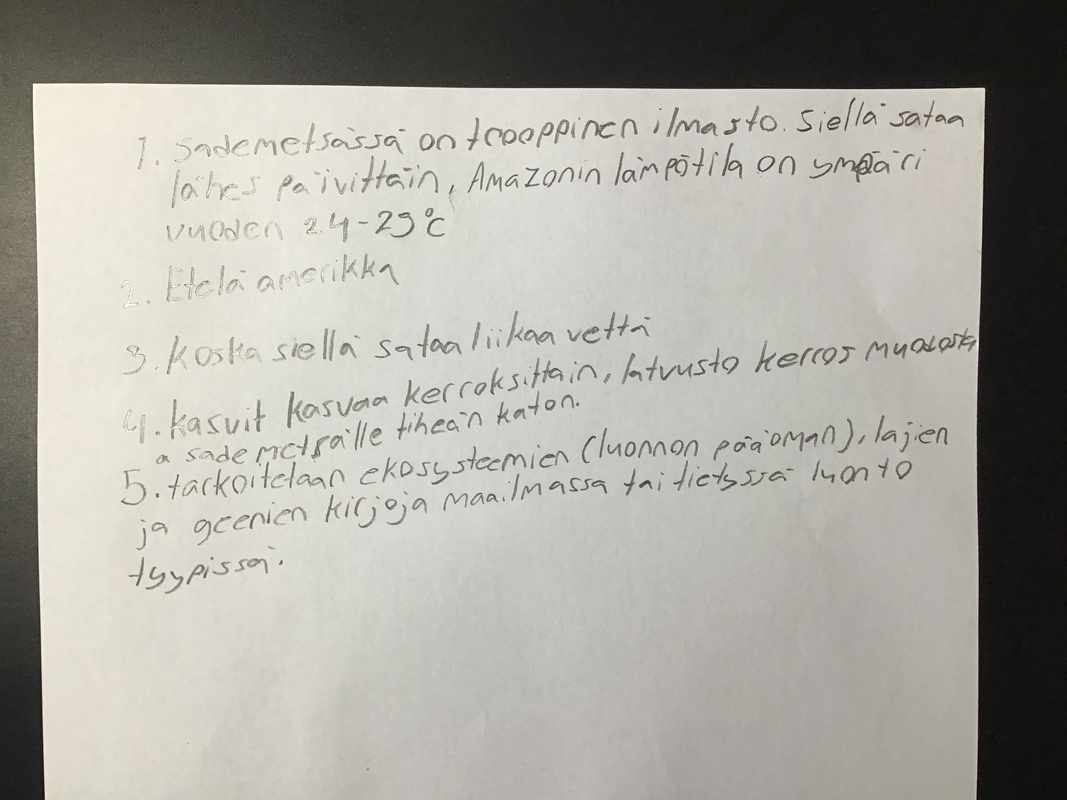 1. Sademetsässä on trooppinen ilmasto. Siellä sataa
lähes päivittäin, Amazonin lämpötila on ympäri
vuoden 24-29°C
2. Etelä amerikka
3. Koska siellä sataa liikaa vettä
4. kasvit kasvaa kerroksittain, latvusto kerros muodost
a sademetsälle tiheän katon.
5. tarkoitetaan ekosysteemien (luonnon pääoman), lajien
ja geenien kirjoja maailmassa tai tietyssä luonto
tyypissä.